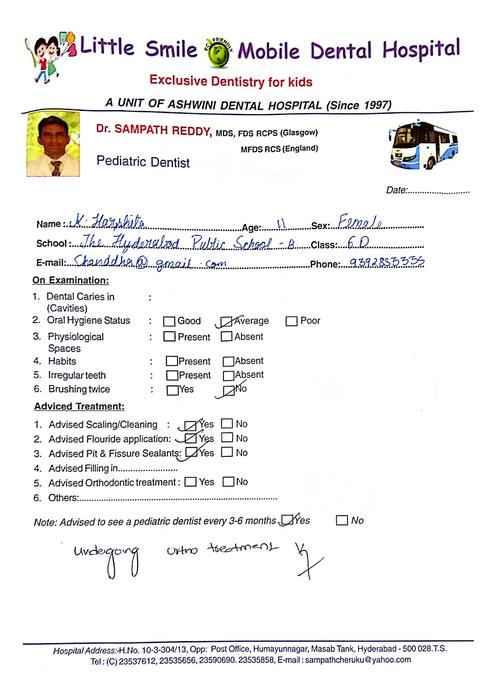 Little Smile Mobile Dental Hospital
ECO FRIENDLY
Exclusive Dentistry for kids
A UNIT OF ASHWINI DENTAL HOSPITAL (Since 1997)
Dr. SAMPATH REDDY, MDS, FDS RCPS (Glasgow)
MFDS RCS (England)
Pediatric Dentist
Date:
Name: K. Harshita Age: 11 Sex: Female
School: The Hyderabad Public School - B Class: 6 D
E-mail: @gmail.com Phone:
On Examination:
1. Dental Caries in :
(Cavities)
2. Oral Hygiene Status : Good Average Poor
3. Physiological : Present Absent
Spaces
4. Habits : Present Absent
5. Irregular teeth : Present Absent
6. Brushing twice : Yes No
Adviced Treatment:
1. Advised Scaling/Cleaning : Yes No
2. Advised Flouride application: Yes No
3. Advised Pit & Fissure Sealants: Yes No
4. Advised Filling in
5. Advised Orthodontic treatment : Yes No
6. Others:
Note: Advised to see a pediatric dentist every 3-6 months Yes No
undergoing ortho treatment
Hospital Address:-H.No. 10-3-304/13, Opp: Post Office, Humayunnagar, Masab Tank, Hyderabad - 500 028.T.S.
Tel : (C) 23537612, 23535656, 23590690. 23535858, E-mail : sampathcheruku@yahoo.com